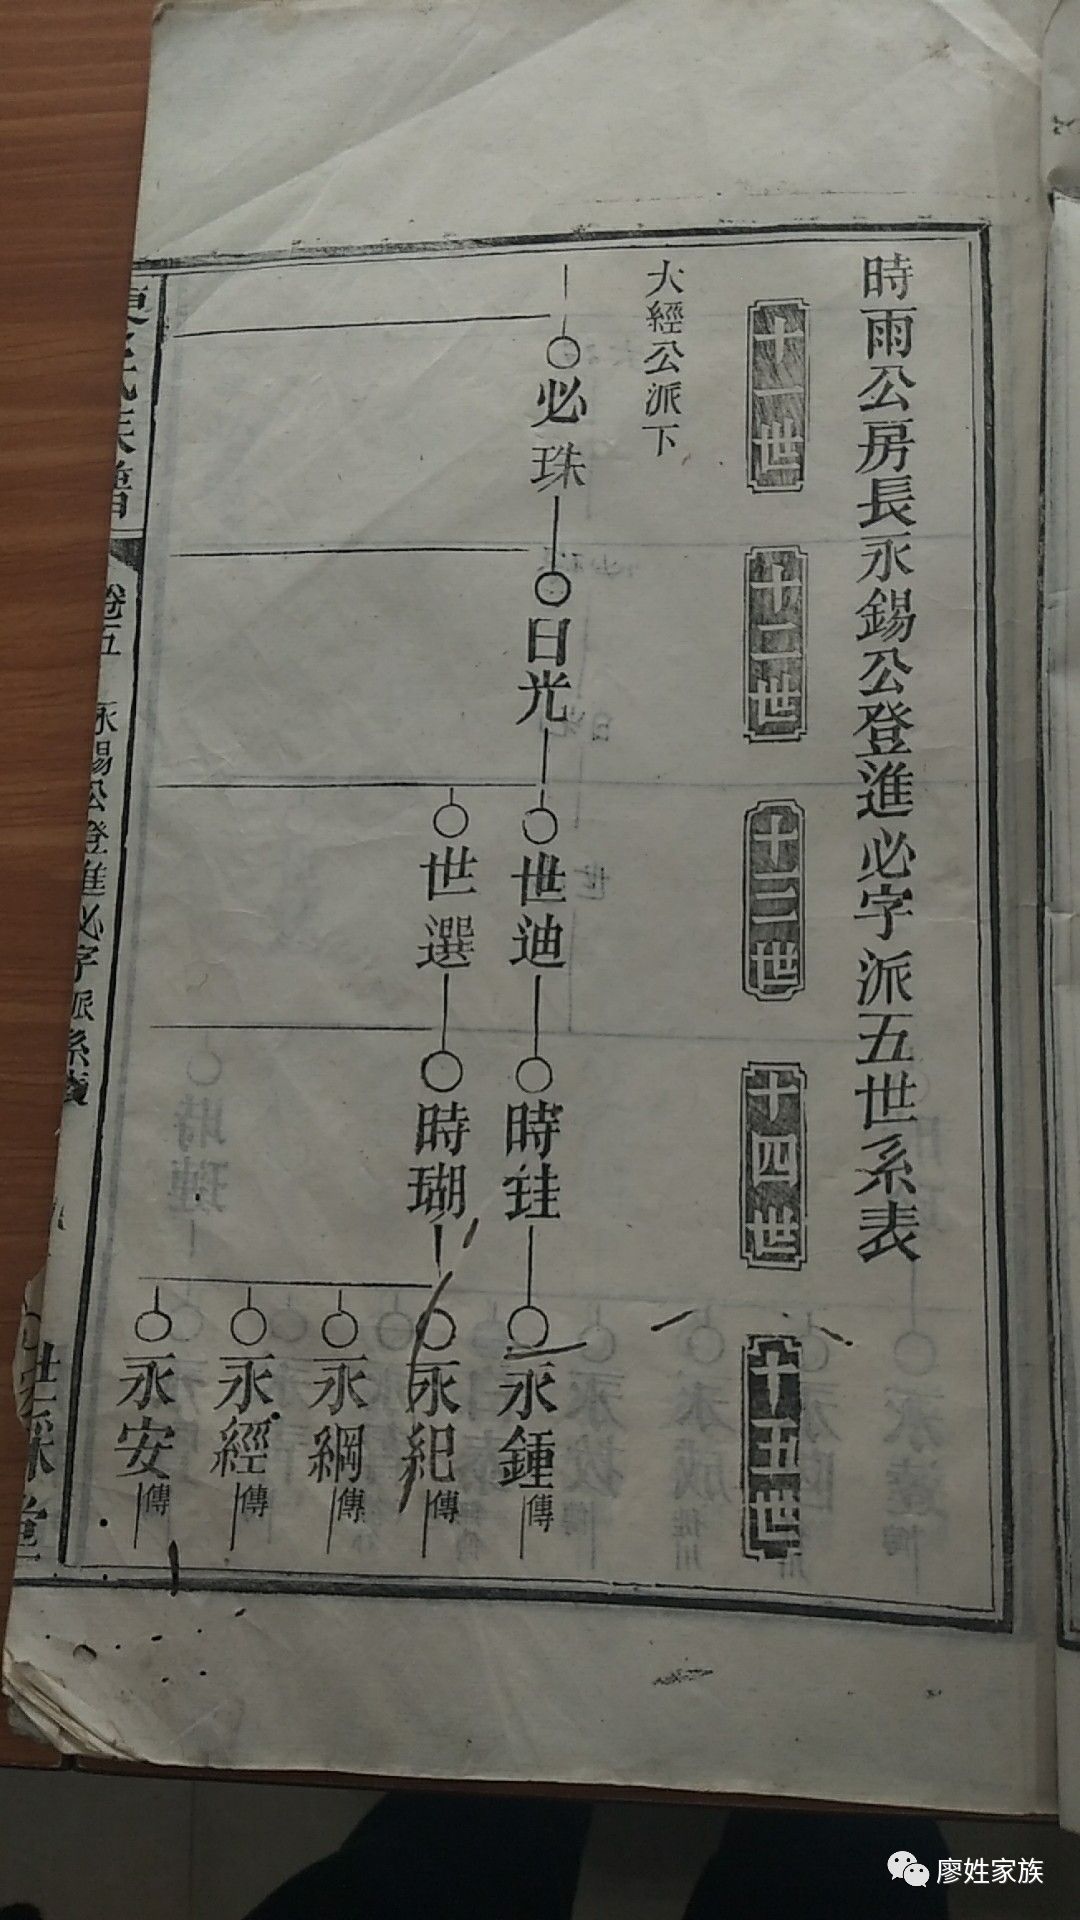 時雨公房長永錫公登進必字派五世系表
十一世
十二世
十三世
十四世
十五世
大經公派下
必珠
日光
世迪
世選
時瑚
永鍾
傳
永紀
傳
永綱
傳
永經
傳
永安
傳
卷五
永錫公登進必字派系表
廖姓家族